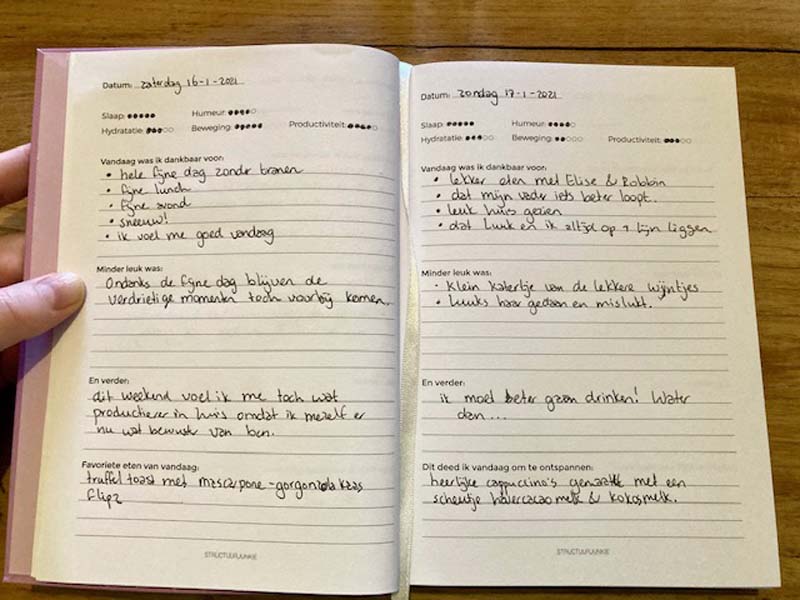 Datum: zaterdag 16-1-2021
Slaap: ●●●●● Humeur: ●●●●○
Hydratatie: ●●●○○ Beweging: ●●●●● Productiviteit: ●●●●○
Vandaag was ik dankbaar voor:
• hele fijne dag zonder tranen
• fijne lunch
• fijne avond
• sneeuw!
• ik voel me goed vandaag
Minder leuk was:
Ondanks de fijne dag blijven de
verdrietige momenten toch voorbij komen.
En verder:
dit weekend voel ik me toch wat
productiever in huis omdat ik mezelf er
nu wat bewuster van ben.
Favoriete eten van vandaag:
truffel toast met mascarpone-gorgonzola kaas
STRUCTUURJUNKIE
Datum: zondag 17-1-2021
Slaap: ●●●●● Humeur: ●●●●○
Hydratatie: ●●●○○ Beweging: ●●○○○ Productiviteit: ●●●○○
Vandaag was ik dankbaar voor:
• lekker eten met Elise & Robbin
• dat mijn vader iets beter loopt.
• leuk huis gezien
• dat Luuk en ik altijd op 1 lijn liggen
Minder leuk was:
• Klein katertje van de lekkere wijntjes
• Luuks haar gedaan en mislukt.
En verder:
ik moet beter gaan drinken! Water
dan...
Dit deed ik vandaag om te ontspannen:
heerlijke cappuccino's gemaakt met een
scheutje havercacaomelk & kokosmelk.
STRUCTUURJUNKIE